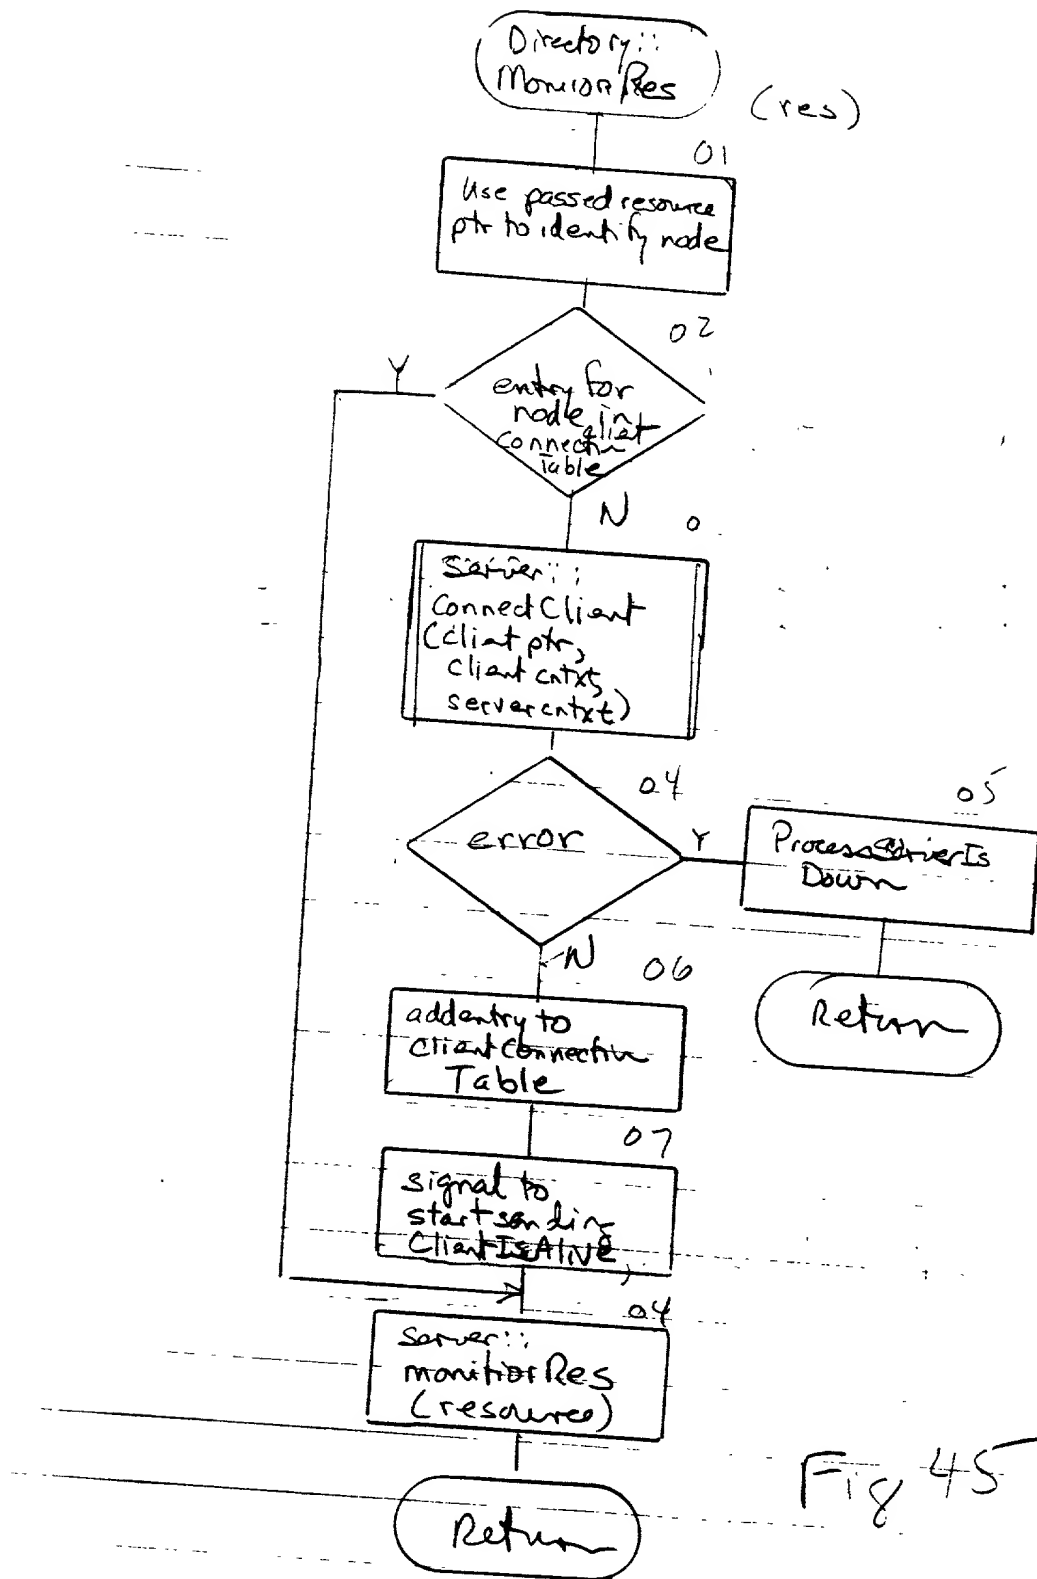 Directory::
MonitorRes
(res)
01
Use passed resource
ptr to identify node
02
Y
entry for
node in
client
connection
Table
N
0
Server::
ConnectClient
(client ptr,
client cntxt,
server cntxt)
04
error
Y
05
ProcessServerIs
Down
N
06
Return
add entry to
ClientConnection
Table
07
signal to
start sending
ClientIsAlive
04
Server::
monitiorRes
(resource)
Fig 45
Return